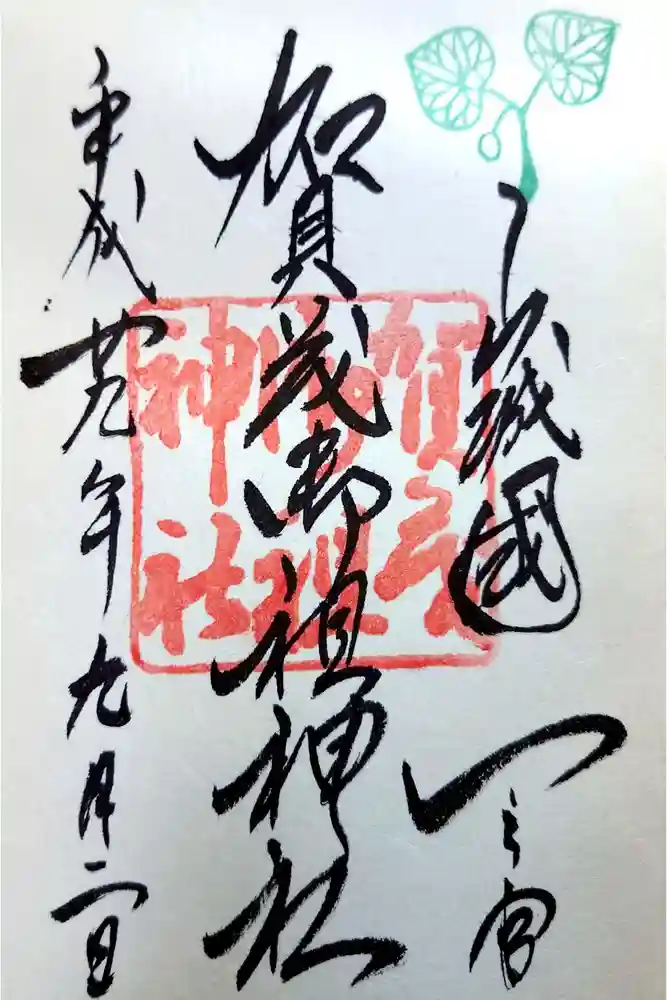 山城國
一之宮
賀茂御祖神社
平成廿九年九月二日
賀茂御祖神社